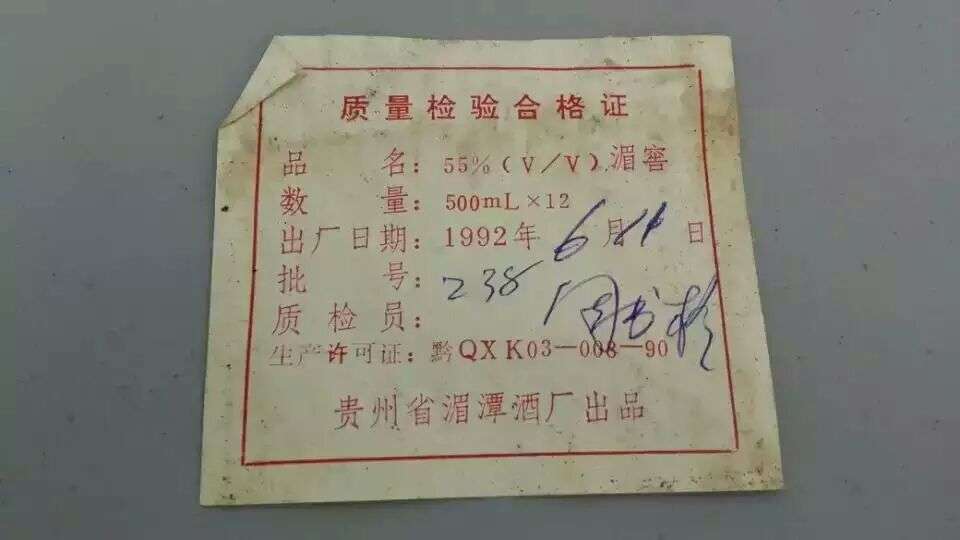 质量检验合格证
品名：55%（V/V）湄窖
数量：500mL×12
出厂日期：1992年6月 日
批号：238
质检员：周
生产许可证：黔QXK03—008—90
贵州省湄潭酒厂出品